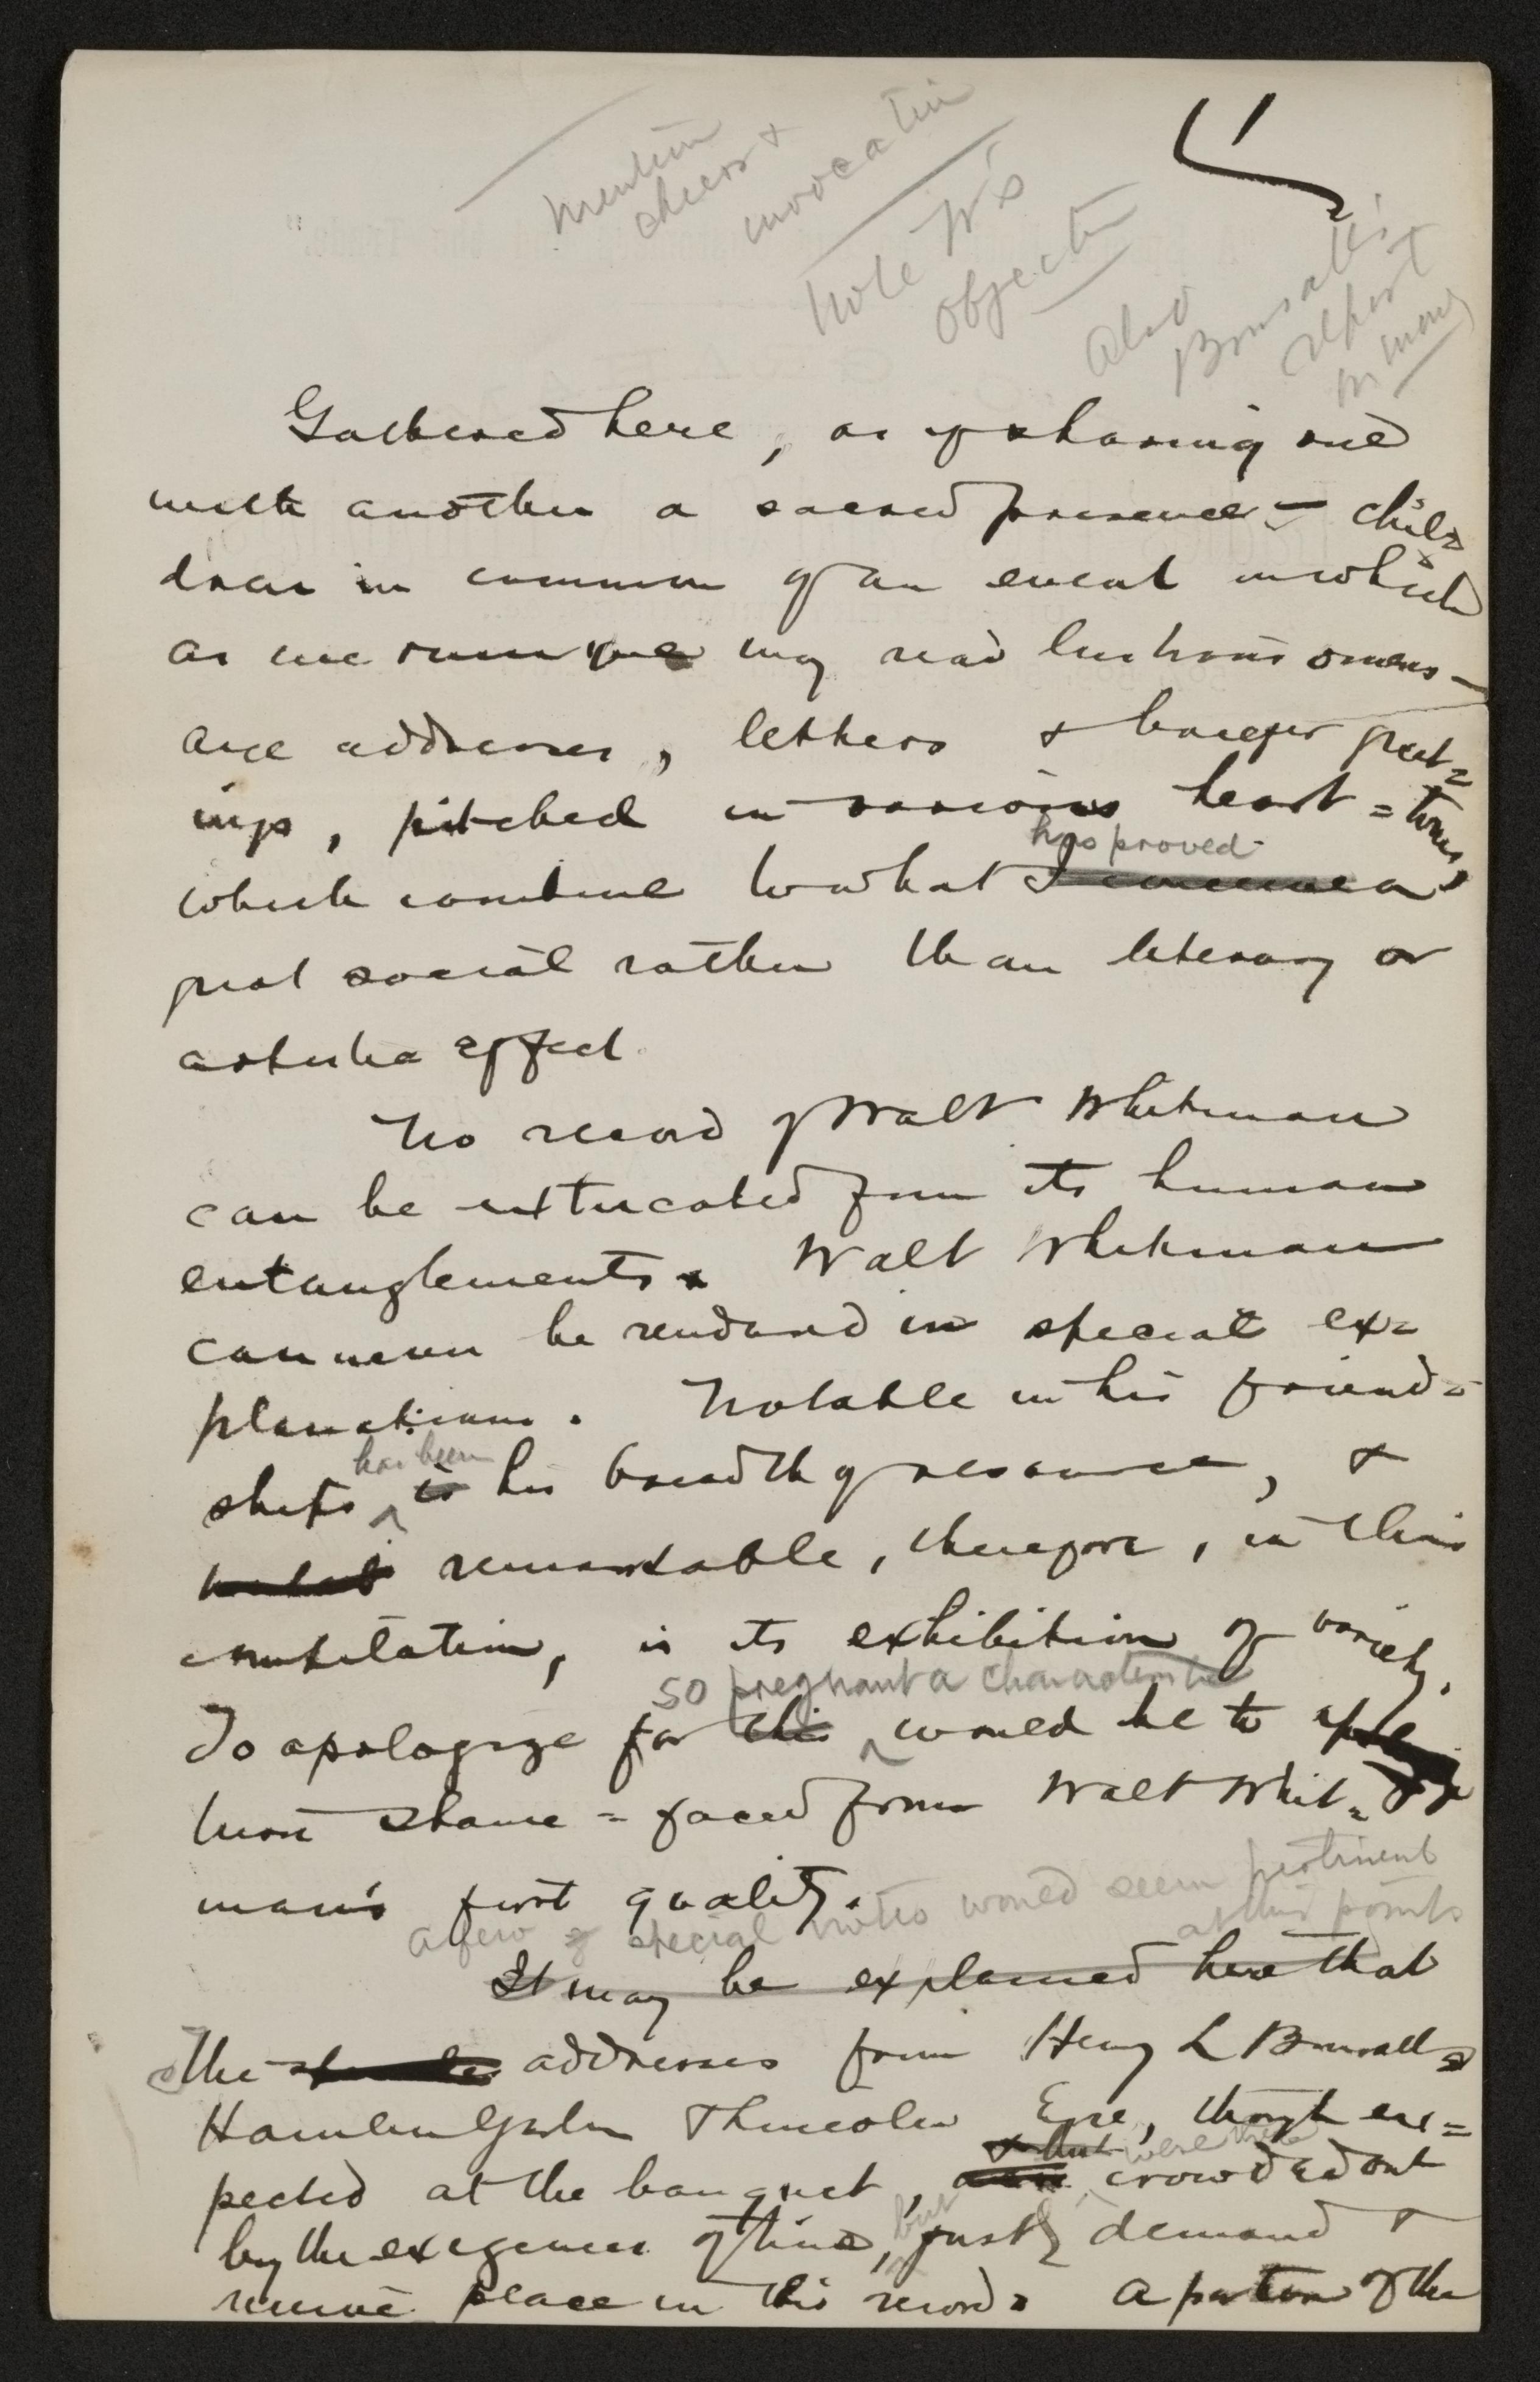 Mention
cheers &
invocation
Note W's
objection
Also
Bonsall's
report
in
Gathered here, as if sharing one
with another a sacred presence — chil=
dren in common of an event in which
as we run we may read lustrous omens —
are addresses, letters & briefer greet=
ings, pitched in various heart=tones,
has proved
which combine to what I conceive a
great social rather than literary or
artistic effect.
No record of Walt Whitman
can be extricated from its human
entanglements. Walt Whitman
can never be rendered in special ex=
planations. Notable in his friend=
has been
ships is his breadth of resource, &
remarkable, therefore, in this
is its exhibition of variety.
so pregnant a characteristic
To apologize for this would be to
turn shame=faced from Walt Whit=
man's first quality.
a few special notes would seem pertinent
at this point
It may be explained here that
the addresses from Henry L Bonsall,
Hamlin Garland & Lincoln Eyre, though ex=
& but were there
pected at the banquet, crowded out
but
by the exigencies of time, justly demand &
receive place in this record. A portion of the